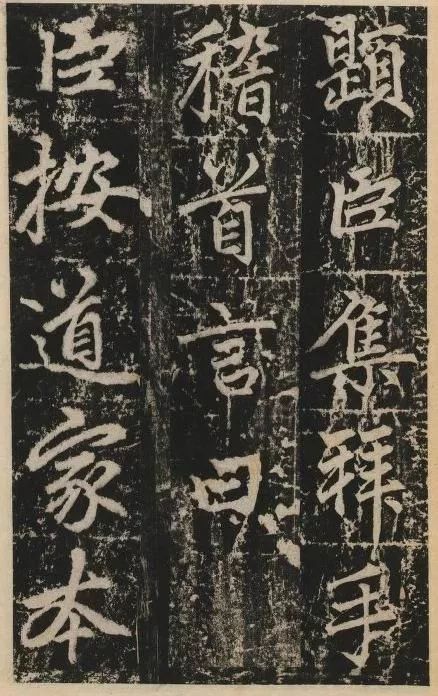 題臣集拜手
稽首言曰
臣按道家本